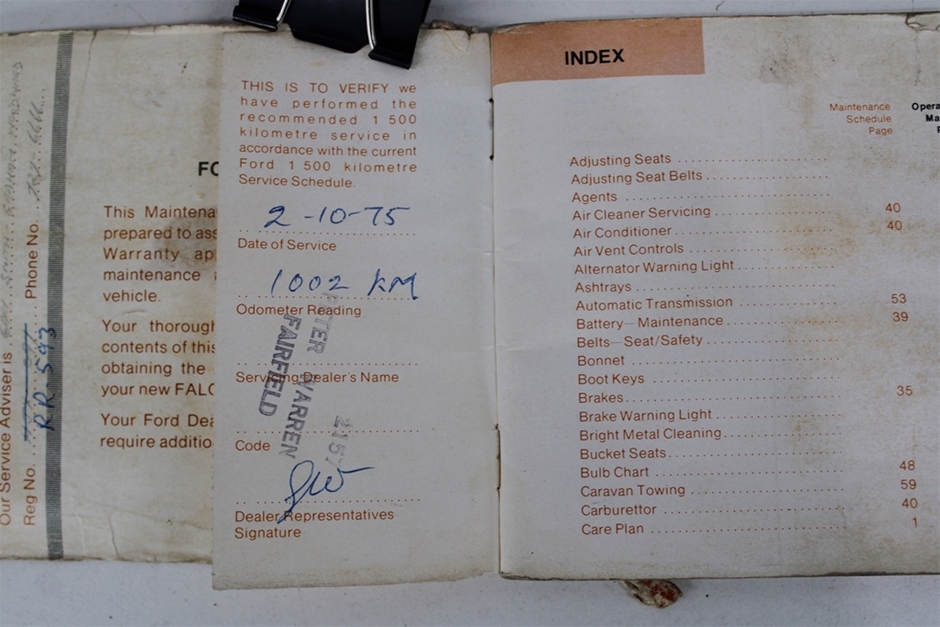 Our Service Adviser is
Reg No. RR·593 Phone No.
FO
This Maintena
prepared to ass
Warranty ap
maintenance
vehicle.
Your thorough
contents of this
obtaining the
your new FALC
Your Ford Dea
require additio
THIS IS TO VERIFY we
have performed the
recommended 1 500
kilometre service in
accordance with the current
Ford 1 500 kilometre
Service Schedule.
2-10-75
Date of Service
1002 KM
Odometer Reading
Servicing Dealer's Name
PETER WARREN
FAIRFIELD
2157
Code
Dealer Representatives
Signature
INDEX
Maintenance
Schedule
Page
Opera
Ma
Adjusting Seats
Adjusting Seat Belts
Agents
Air Cleaner Servicing 40
Air Conditioner 40
Air Vent Controls
Alternator Warning Light
Ashtrays
Automatic Transmission 53
Battery—Maintenance 39
Belts—Seat/Safety
Bonnet
Boot Keys
Brakes 35
Brake Warning Light
Bright Metal Cleaning
Bucket Seats
Bulb Chart 48
Caravan Towing 59
Carburettor 40
Care Plan 1